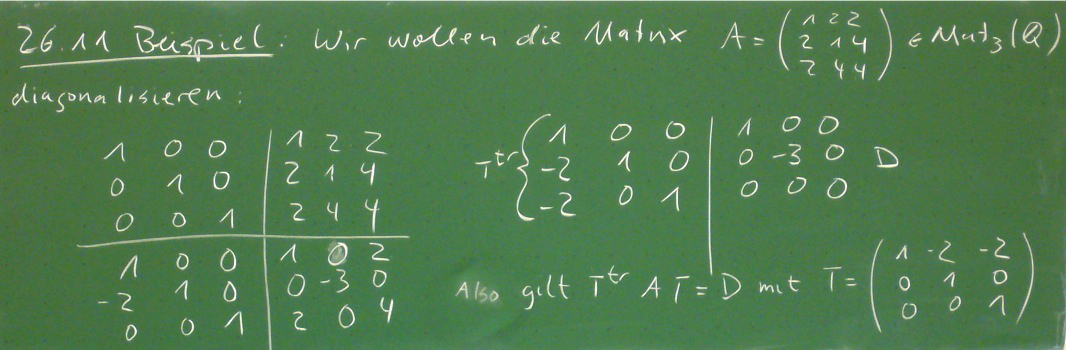 26.11 Beispiel: Wir wollen die Matrix A = ( 1 2 2 / 2 1 4 / 2 4 4 ) ∈ Mat₃(Q)
diagonalisieren:
1 0 0 | 1 2 2
0 1 0 | 2 1 4
0 0 1 | 2 4 4
1 0 0 | 1 0 2
-2 1 0 | 0 -3 0
0 0 1 | 2 0 4
Tᵗʳ { 1 0 0 | 1 0 0
-2 1 0 | 0 -3 0 D
-2 0 1 | 0 0 0
Also gilt Tᵗʳ A T = D mit T = ( 1 -2 -2 / 0 1 0 / 0 0 1 )